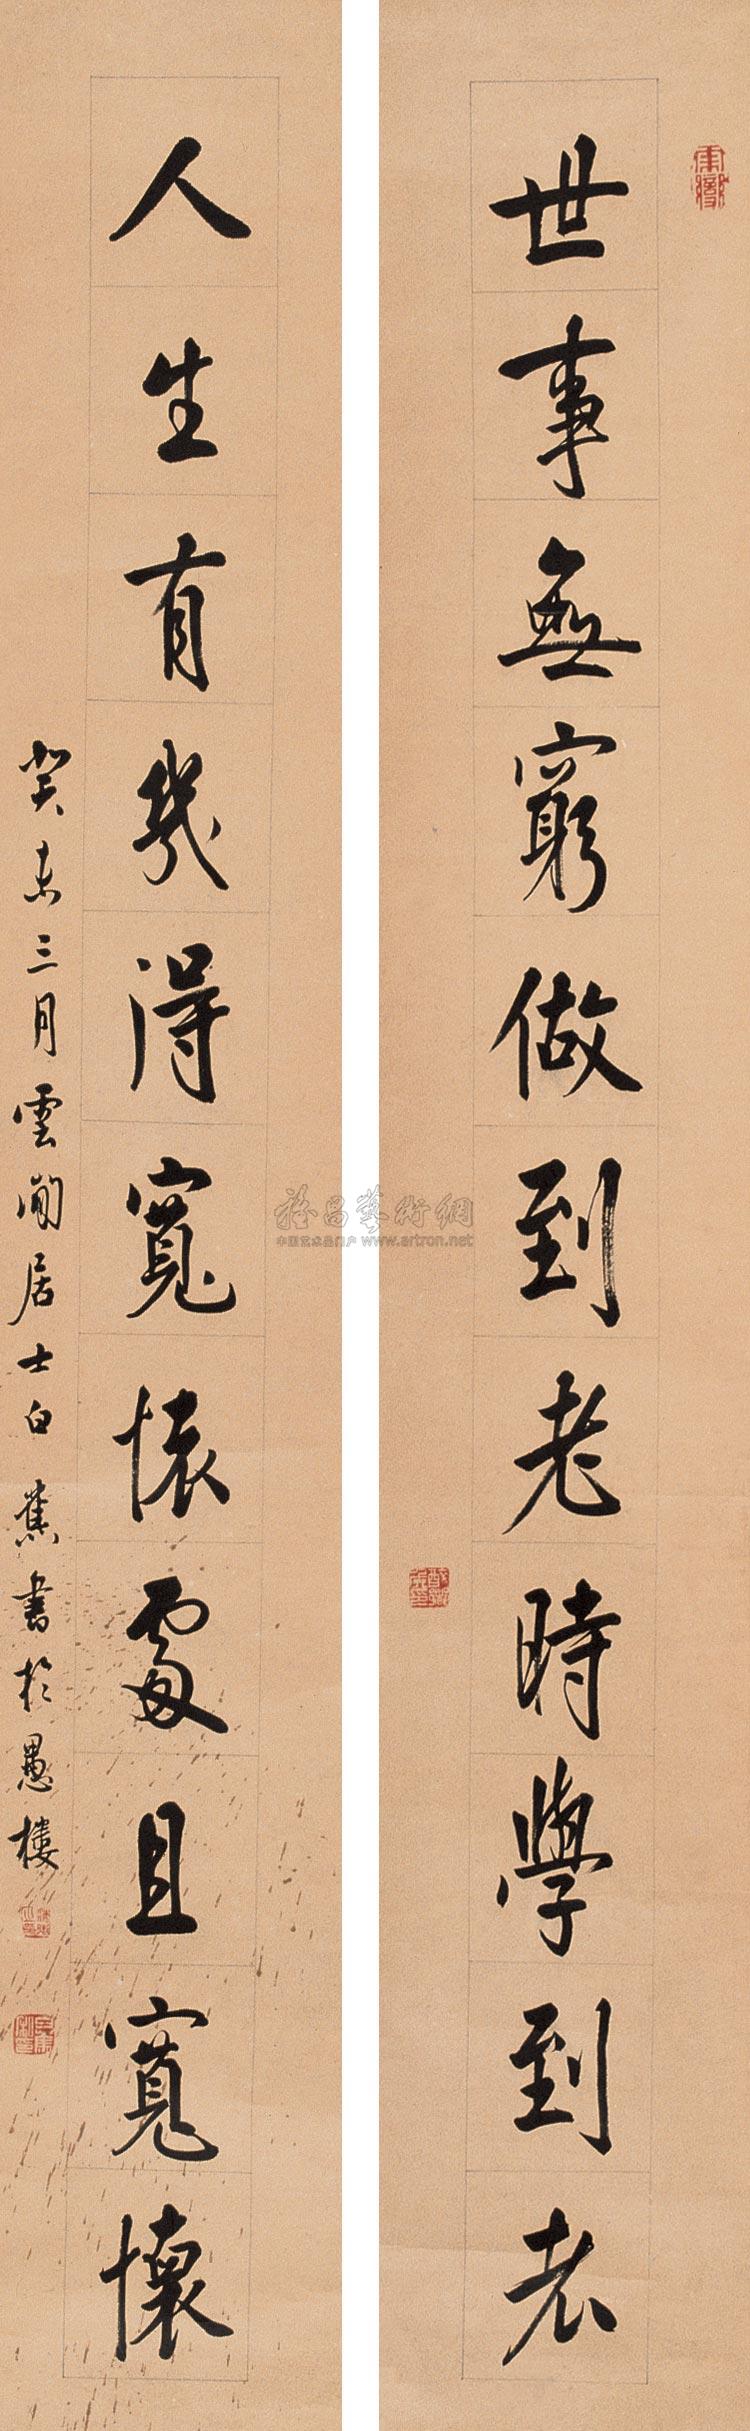 世事無窮做到老時學到老
人生有幾得寬懷處且寬懷
癸未三月雲間居士白蕉書於愚樓
雅昌藝術網
中国艺术品门户 www.artron.net